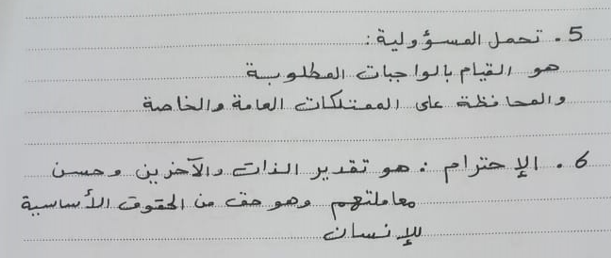 5. تحمل المسؤولية:
هو القيام بالواجبات المطلوبة
والمحافظة على الممتلكات العامة والخاصة
6. الإحترام: هو تقدير الذات والآخرين وحسن
معاملتهم وهو حق من الحقوق الأساسية
للإنسان